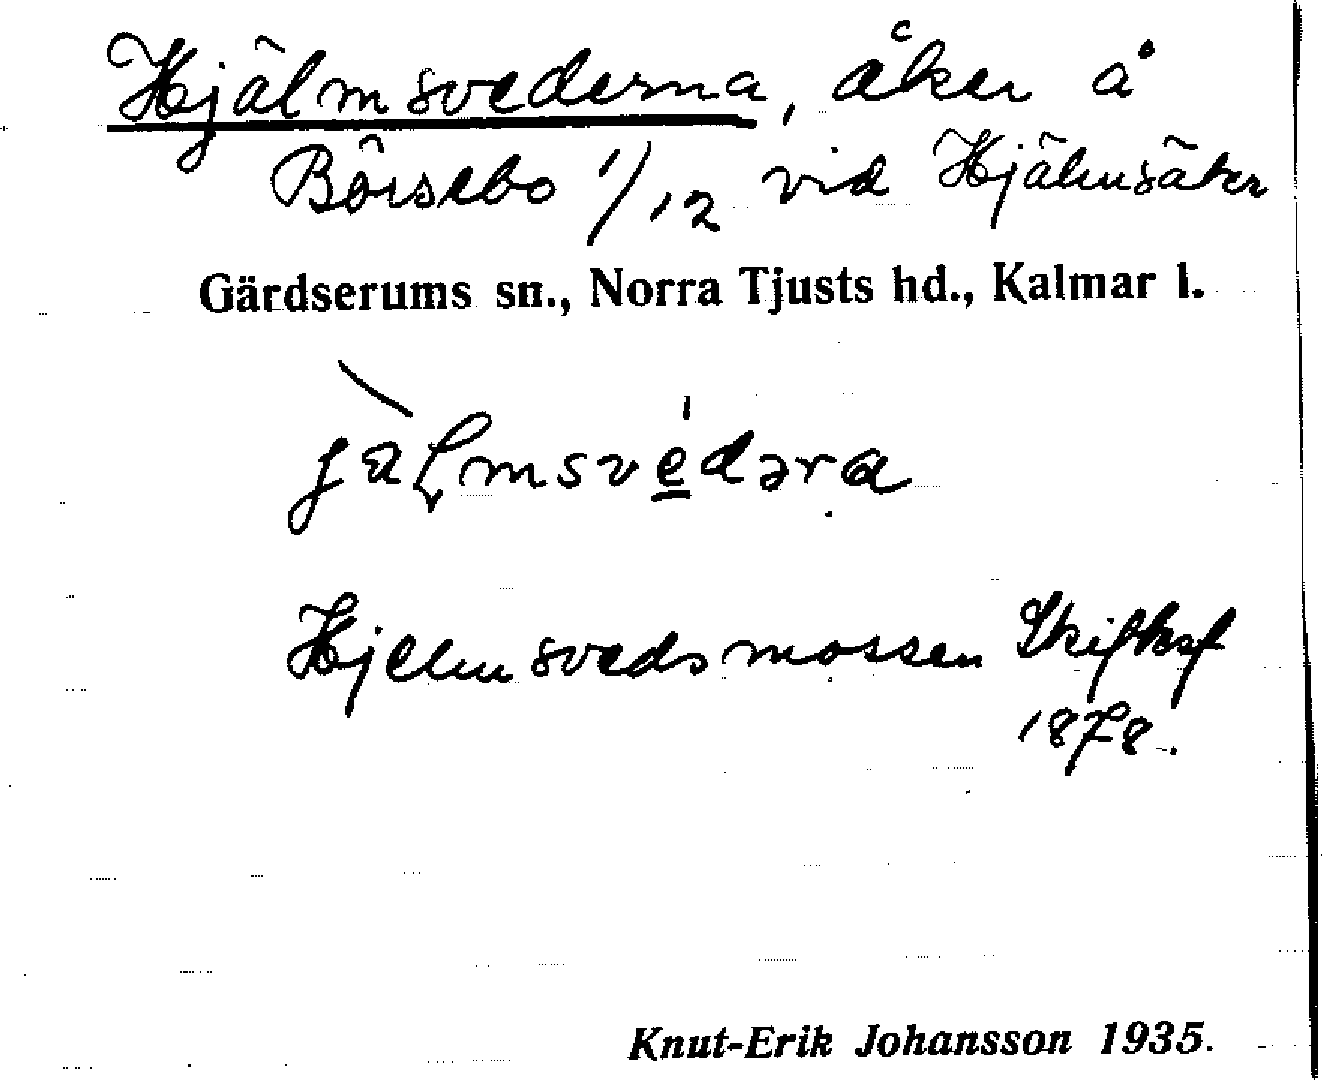 Hjälmsvederna, åker å
Börsebo 1/12 vid Hjälmsäter
Gärdserums sn., Norra Tjusts hd., Kalmar l.
jàlmsvédəra
Hjelmsvedsmossen Skifksf
1878.
Knut-Erik Johansson 1935.